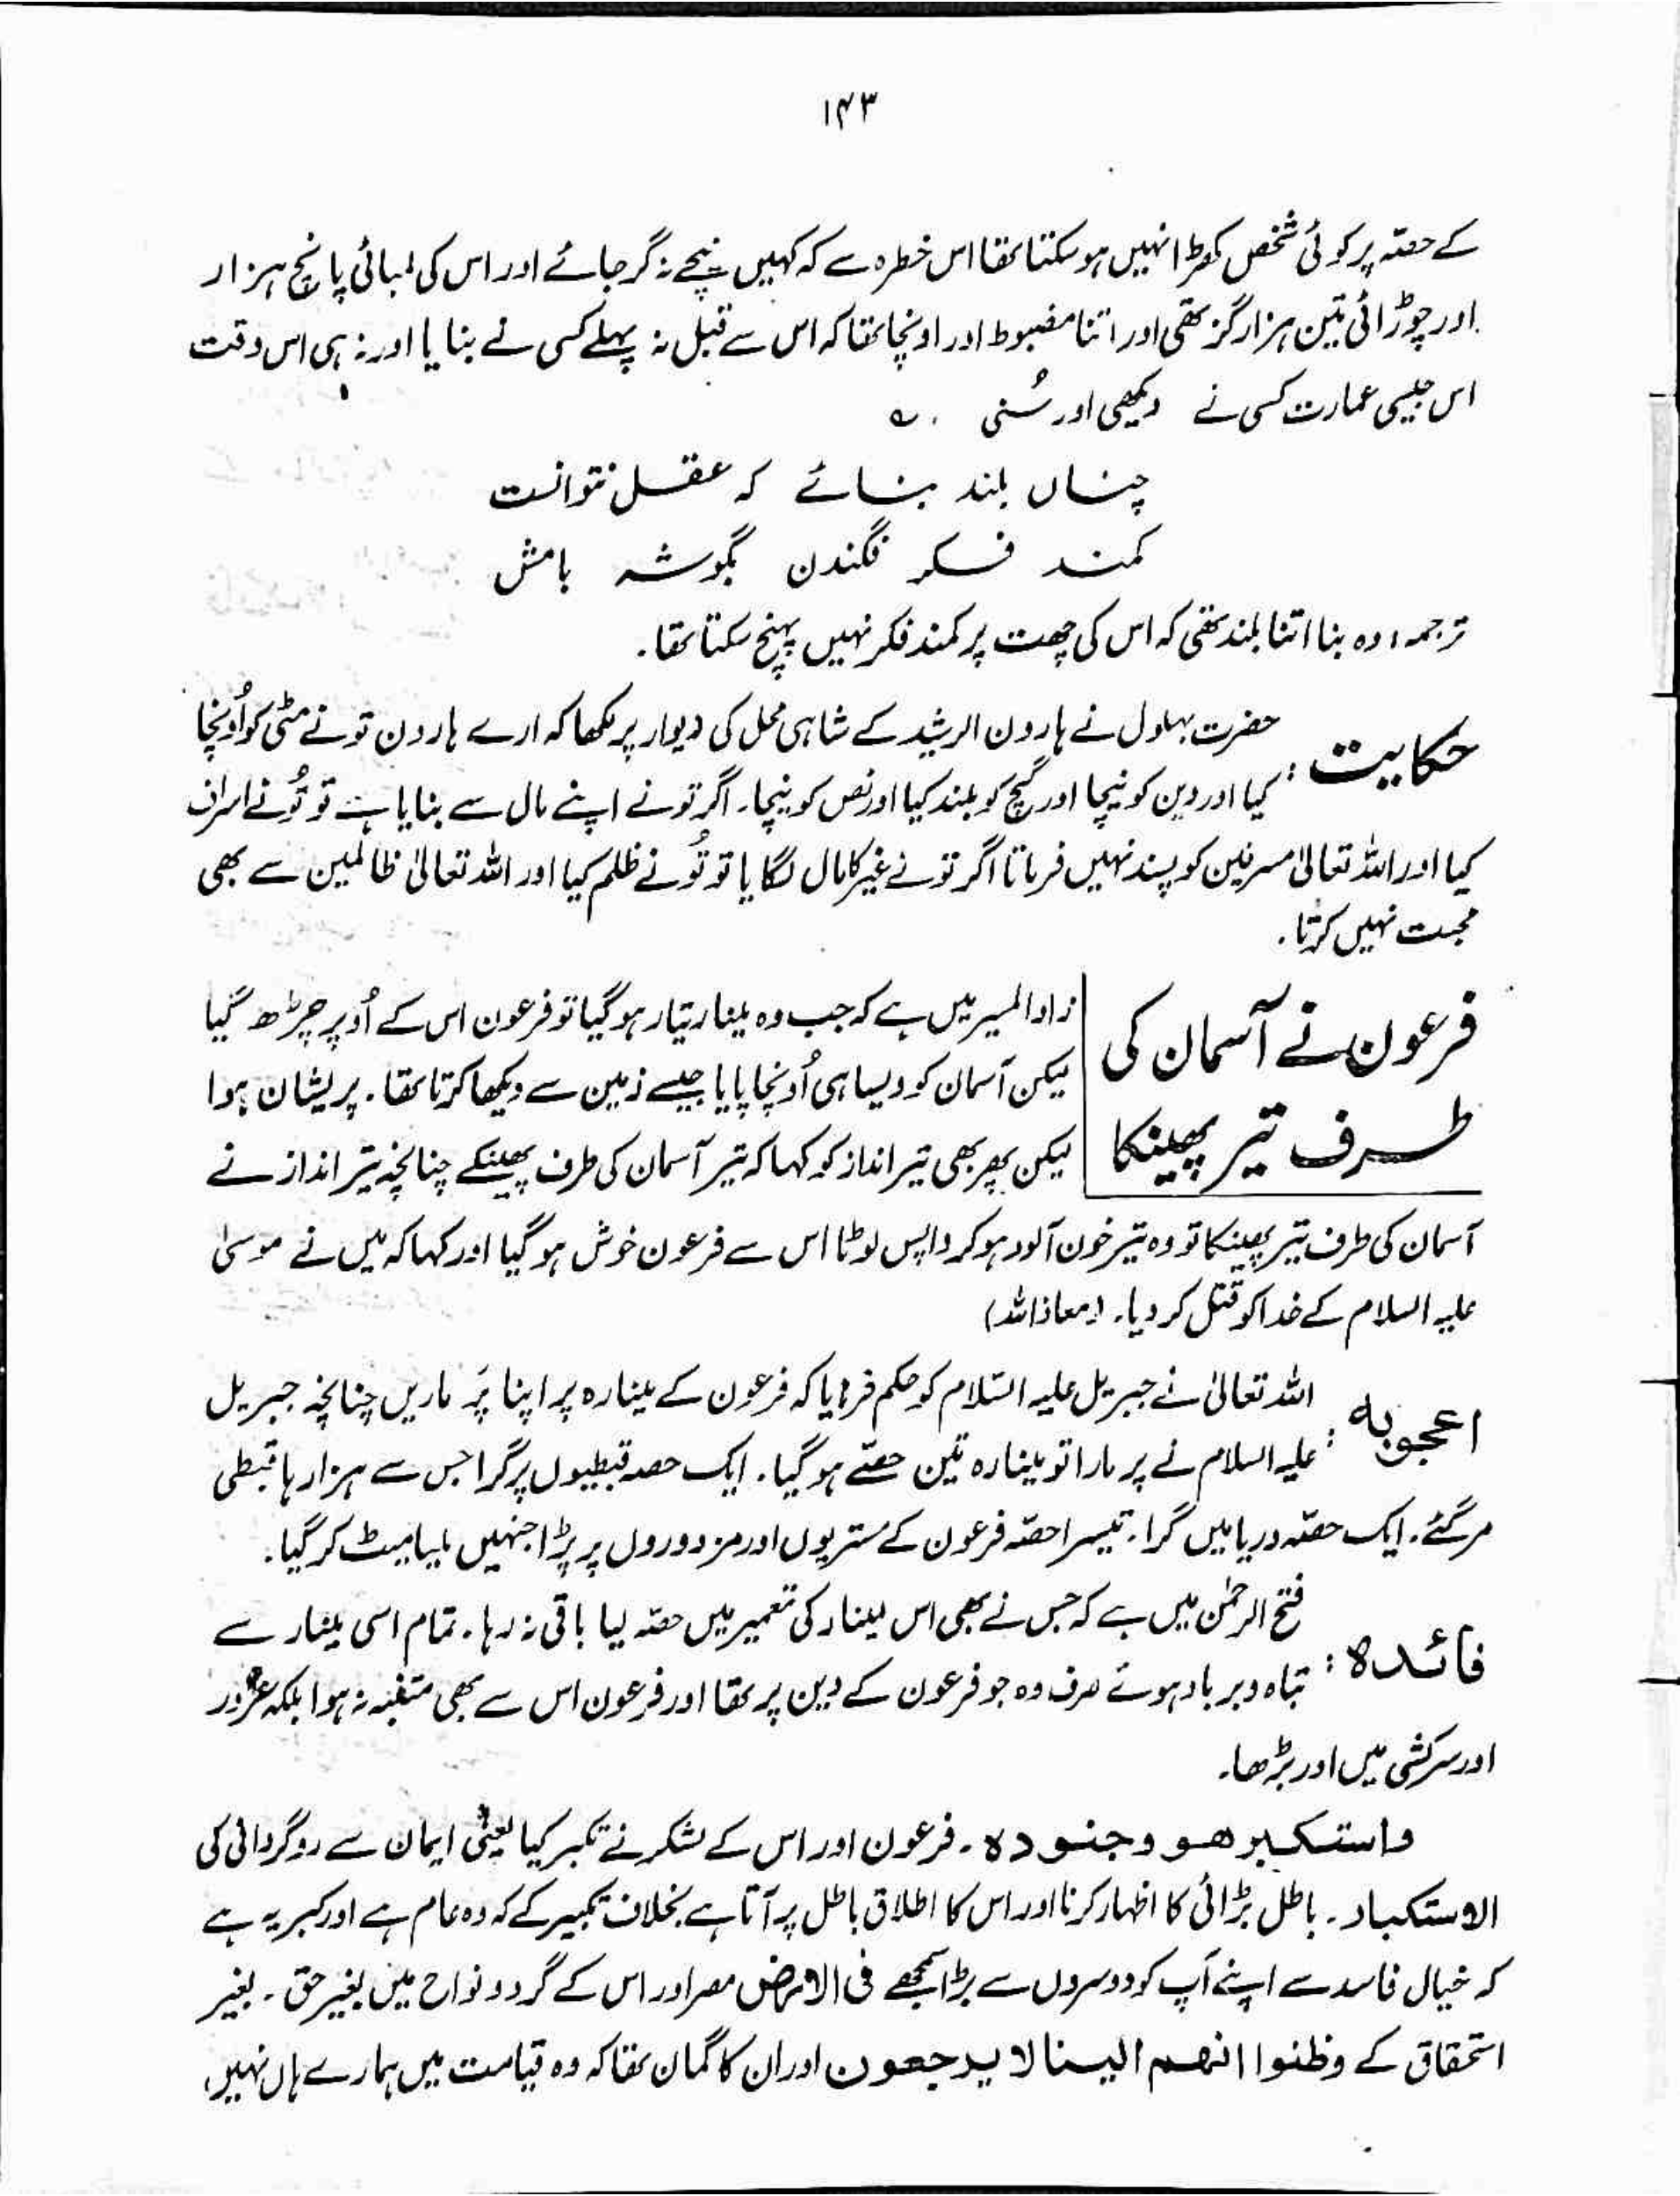 ۱۴۳
کے حصہ پر کوئی شخص کھڑا نہیں ہوسکتا تھا اس خطرہ سے کہ کہیں نیچے نہ گر جائے اور اس کی لمبائی پانچ ہزار
اور چوڑائی تین ہزار گز تھی اور اتنا مضبوط اور اونچا تھا کہ اس سے قبل نہ پہلے کسی نے بنایا اور نہ ہی اس وقت
اس جیسی عمارت کسی نے دیکھی اور سُنی ۔ ؎
چناں بلند بنائے کہ عقل نتوانست
کمند فکر فگندن بگوشہ بامش
ترجمہ، وہ بنا اتنا بلند تھی کہ اس کی چھت پر کمند فکر نہیں پہنچ سکتا تھا۔
حکایت : حضرت بہلول نے ہارون الرشید کے شاہی محل کی دیوار پر لکھا کہ ارے ہارون تو نے مٹی کو اُونچا
کیا اور دین کو نیچا اور گچ کو بلند کیا اور نص کو نیچا۔ اگر تو نے اپنے مال سے بنایا ہے تو تُو نے اسراف
کیا اور اللہ تعالیٰ مسرفین کو پسند نہیں فرماتا اگر تو نے غیر کا مال لگایا تو تُو نے ظلم کیا اور اللہ تعالیٰ ظالمین سے بھی
محبت نہیں کرتا۔
فرعون نے آسمان کی
طرف تیر پھینکا
زاد المسیر میں ہے کہ جب وہ مینار تیار ہوگیا تو فرعون اس کے اُوپر چڑھ گیا
لیکن آسمان کو ویسا ہی اُونچا پایا جیسے زمین سے دیکھا کرتا تھا۔ پریشان ہوا
لیکن پھر بھی تیر انداز کو کہا کہ تیر آسمان کی طرف پھینکے چنانچہ تیر انداز نے
آسمان کی طرف تیر پھینکا تو وہ تیر خون آلود ہوکر واپس لوٹا اس سے فرعون خوش ہوگیا اور کہا کہ میں نے موسیٰ
علیہ السلام کے خدا کو قتل کر دیا۔ (معاذ اللہ)
اعجوبہ : اللہ تعالیٰ نے جبریل علیہ السّلام کو حکم فرمایا کہ فرعون کے مینارہ پر اپنا پَر ماریں چنانچہ جبریل
علیہ السلام نے پر مارا تو مینارہ تین حصّے ہوگیا۔ ایک حصہ قبطیوں پر گرا جس سے ہزارہا قبطی
مرگئے۔ ایک حصّہ دریا میں گرا۔ تیسرا حصّہ فرعون کے مستریوں اور مزدوروں پر پڑا جنہیں ملیامیٹ کر گیا۔
فائدہ : فتح الرحمٰن میں ہے کہ جس نے بھی اس مینار کی تعمیر میں حصہ لیا باقی نہ رہا۔ تمام اسی مینار سے
تباہ و برباد ہوئے صرف وہ جو فرعون کے دین پر تھا اور فرعون اس سے بھی متنبہ نہ ہوا بلکہ غرور
اور سرکشی میں اور بڑھا۔
واستکبر ھو وجنودہ ۔ فرعون اور اس کے لشکر نے تکبر کیا یعنی ایمان سے روگردانی کی
الاستکبار ۔ باطل بڑائی کا اظہار کرنا اور اس کا اطلاق باطل پر آتا ہے بخلاف تکبیر کے کہ وہ عام ہے اور کبر یہ ہے
کہ خیال فاسد سے اپنے آپ کو دوسروں سے بڑا سمجھے فی الارض مصر اور اس کے گرد و نواح میں بغیر حق ۔ بغیر
استحقاق کے وظنوا انھم الینا لا یرجعون اور ان کا گمان تھا کہ وہ قیامت میں ہمارے ہاں نہیں